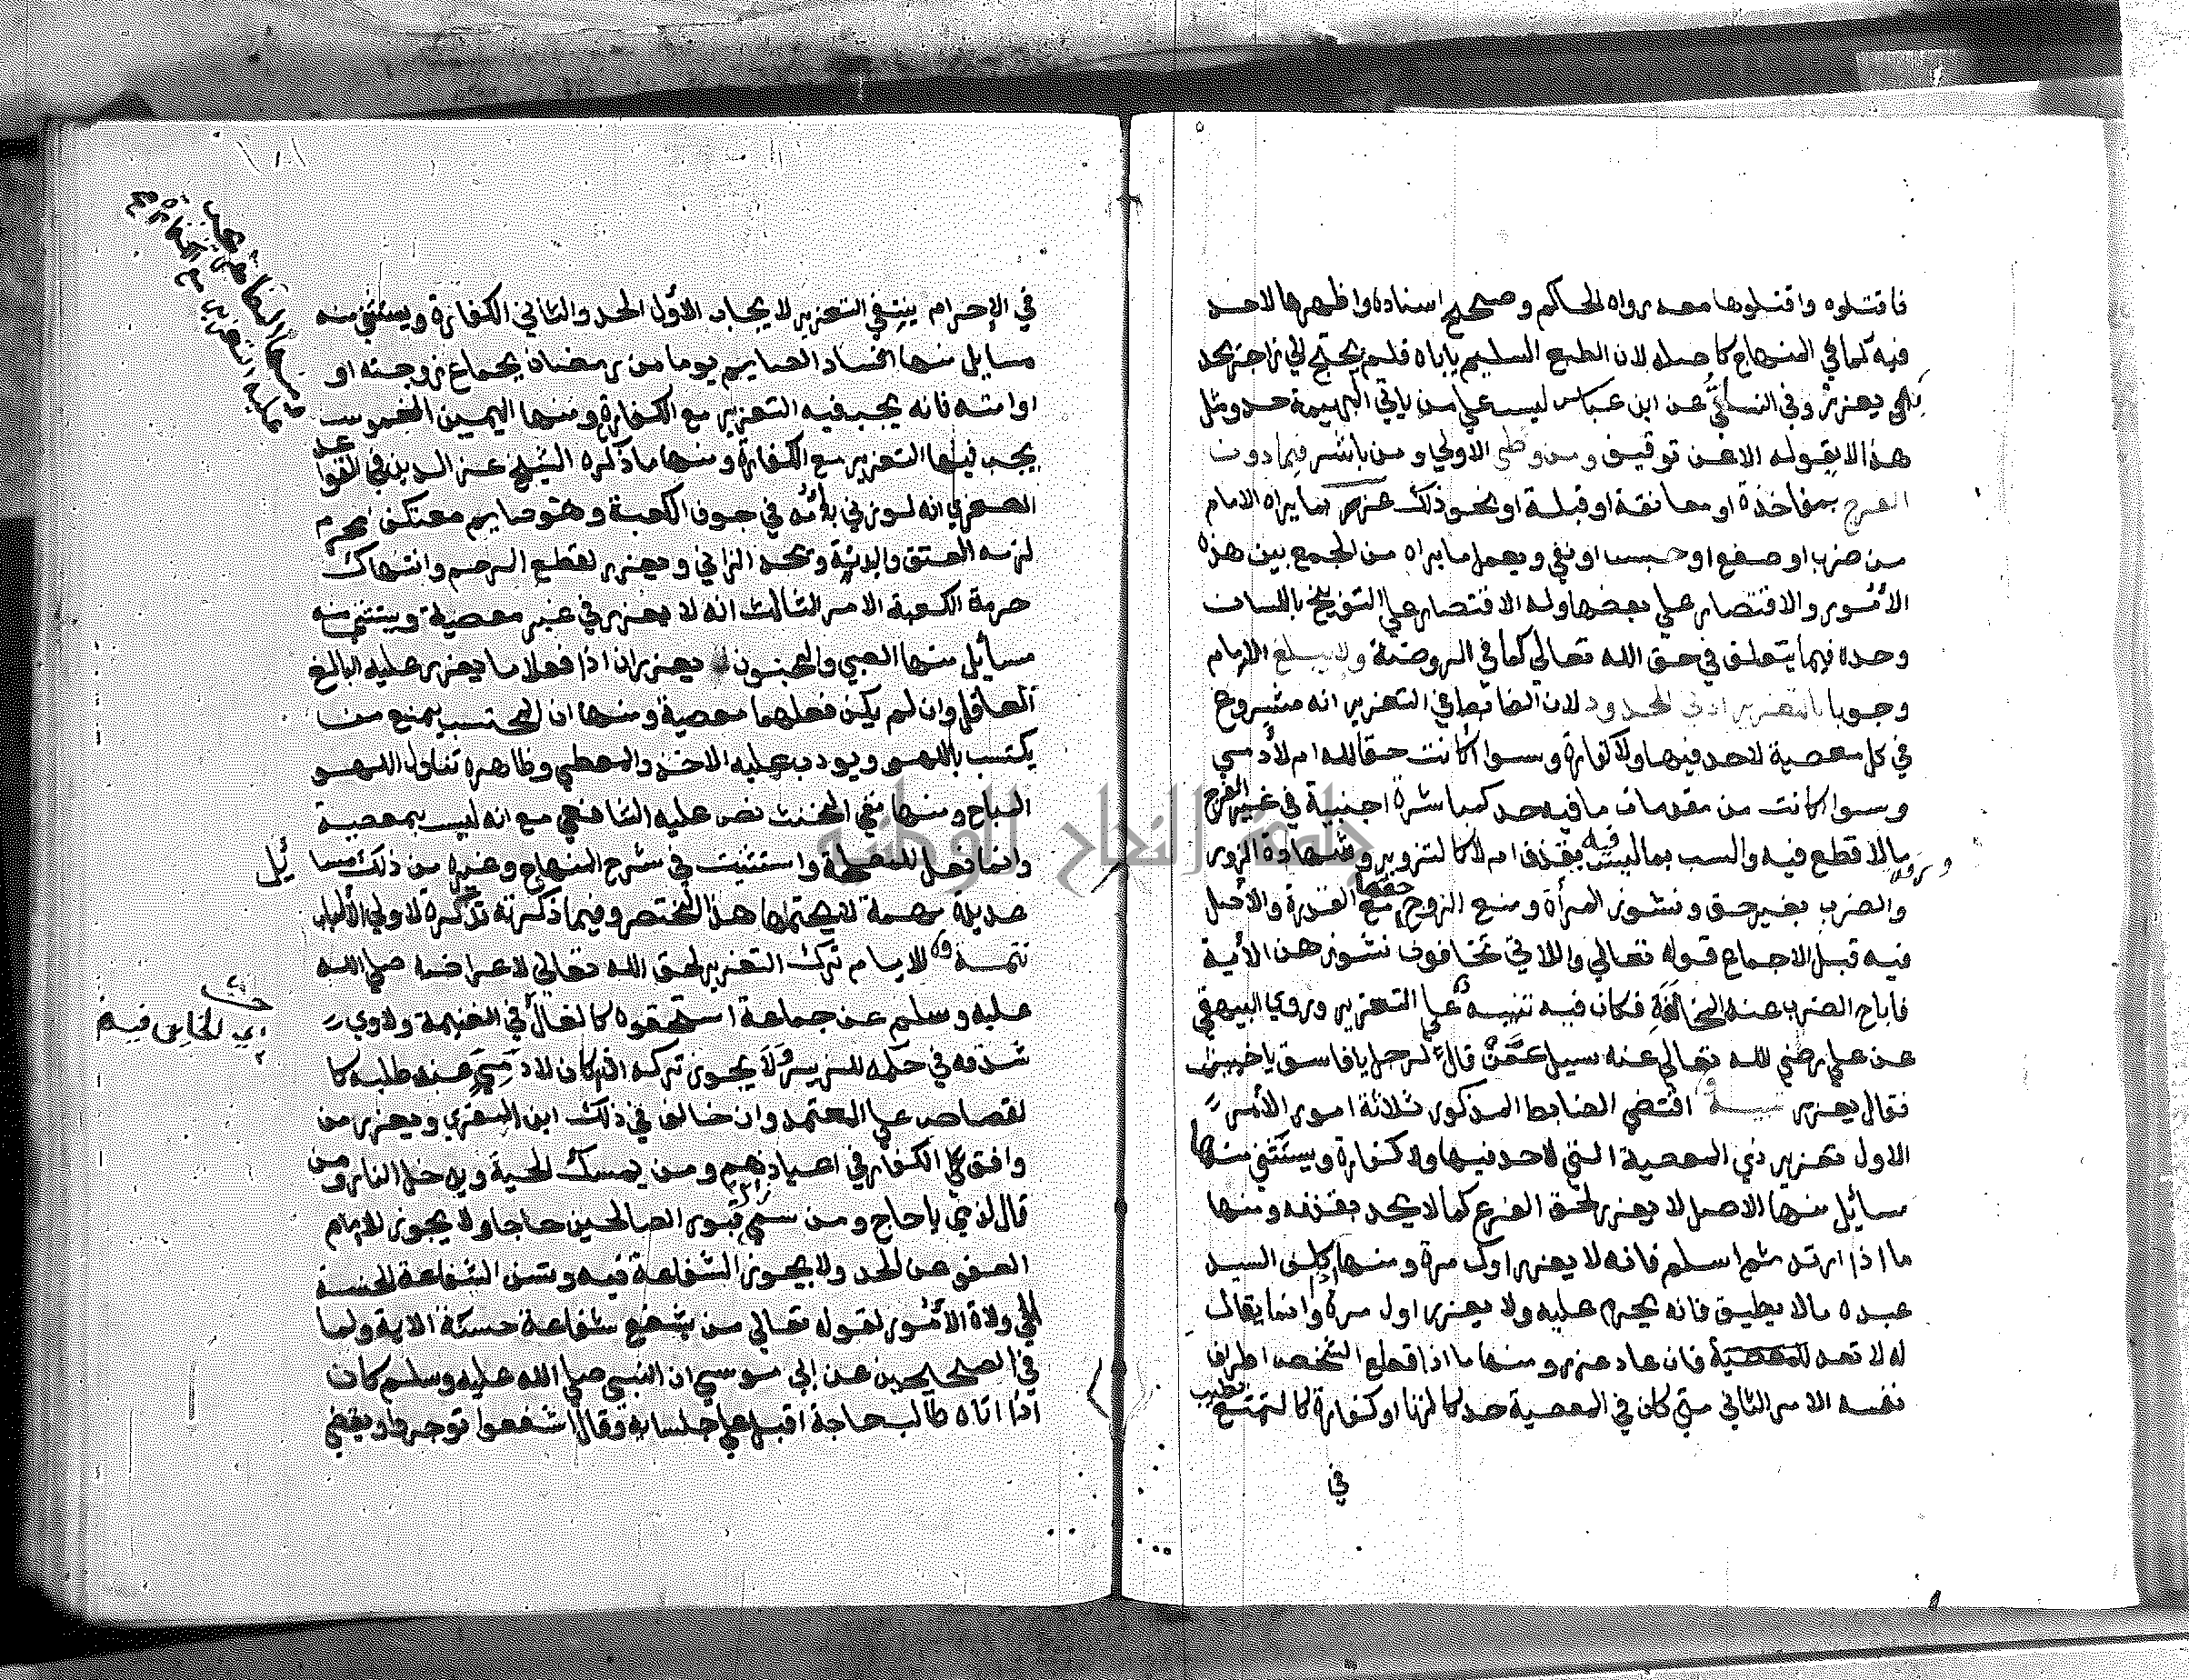 فاقتلوه واقتلوها معه رواه الحاكم وصحح اسناده واظهرها لاحد
فيه كما في المنهاج كاصله لان الطبع السليم ياباه فلم يحتج الي زاجر بحد
بل يعزر وفي النسائي عن ابن عباس ليس علي من ياتي البهيمة حد ومثل
هذا لا يقوله الا عن توقيف ومن وطي الاولي ومن باشر فيما دون
الفرج بمفاخذة او معانقة او قبلة او نحو ذلك عزر بما يراه الامام
من ضرب او صفع او حبس او نفي ويعمل ما يراه من الجمع بين هذه
الأمور والاقتصار علي بعضها وله الاقتصار علي التوبيخ باللسان
وحده فيما يتعلق في حق الله تعالي كما في الروضة ولا يبلغ الامام
وجوبا بالتعزير ادنى الحدود لان الضابط في التعزير انه مشروع
في كل معصية لا حد فيها ولا كفارة وسوا أكانت حقا لله ام لأدمي
وسوا كانت من مقدمات ما فيه حد كمباشرة اجنبية في غير الفرج
وسرقة
ما لا قطع فيه والسب بما ليس فيه بقذف ام لا كالتزوير وشهادة الزور
والضرب بغير حق ونشوز المرأة ومنع الزوج حقها مع القدرة والأصل
فيه قبل الاجماع قوله تعالي واللاتي تخافون نشوزهن الأية
فاباح الضرب عند المخالفة فكان فيه تنبيه علي التعزير وروي البيهقي
عن علي رضي الله تعالي عنه سيل عمن قال لرجل يا فاسق يا خبيث
فقال يعزر تنبيه اقتضي الضابط المذكور ثلاثة امور الأمر
الاول تعزير ذي المعصية التي لا حد فيها ولا كفارة ويستثني منها
سائل منها الاصل لا يعزر لحق الفرع كما لا يحد بقذفه ومنها
ما اذا ارتد ثم اسلم فانه لا يعزر اول مرة ومنها اذا كلف السيد
عبده ما لا يطيق فانه يحرم عليه ولا يعزر اول مرة وانما يقال
له لا تعد للمعصية فان عاد عزر ومنها ما اذا قطع الشخص اطراف
نفسه الامر الثاني متي كان في المعصية حد كالزنا او كفارة كالتمتع بطيب
في
في الإحرام ينتفي التعزير لا يجاب الأول الحد والثاني الكفارة ويستثني منه
مسايل منها افساد الصايم يوما من رمضان بجماع زوجته او
او امته فانه يجب فيه التعزير مع الكفارة ومنها اليمين الغموس
يجب فيها التعزير مع الكفارة ومنها ما ذكره الشيخ عز الدين في القواعد
الصغري انه لو زني بأمه في جوف الكعبة وهو صايم معتكف محرم
لزمه العتق والبدنة ويحد الزاني ويعزر لقطع الرحم وانتهاك
حرمة الكعبة الامر الثالث انه لا يعزر في غير معصية ويستثني منه
مسائل منها الصبي والمجنون يعزران اذا فعلا ما يعزر عليه البالغ
العاقل وان لم يكن فعلهما معصية ومنها ان المحتسب يمنع من
يكتسب باللهو ويودب عليه الاخذ والمعطي وظاهره تناول اللهو
المباح ومنها نفي المخنث نص عليه الشافعي مع انه ليس بمعصية
وانما فعل للمصلحة واستثنيت في شرح المنهاج وغيره من ذلك مسا
ئل
عديدة مهمة لا يحتملها هذا المختصر وفيما ذكرته تذكرة لاولي الألباب
تتمة للامام ترك التعزير لحق الله تعالي لاعراضه صلي الله
عليه وسلم عن جماعة استحقوه كالغال في الغنيمة ولاوي
شدقه في حكمه للزبير ولا يجوز تركه ان كان لادمي عند طلبه كا
لقصاص علي المعتمد وان خالف في ذلك ابن المقري ويعزر من
وافق الكفار في اعيادهم ومن يمسك الحية ويدخل النار ومن
قال لذمي يا حاج ومن سمي زائر قبور الصالحين حاجا ولا يجوز للامام
العفو عن الحد ولا يجوز الشفاعة فيه وتسن الشفاعة الحسنة
الي ولاة الأمور لقوله تعالي من يشفع شفاعة حسنة الاية ولما
في الصحيحين عن ابي موسي ان النبي صلي الله عليه وسلم كان
اذا اتاه طالب حاجة اقبل علي جلسايه وقال اشفعوا توجروا ويقضي
جامعة النجاح الوطنية